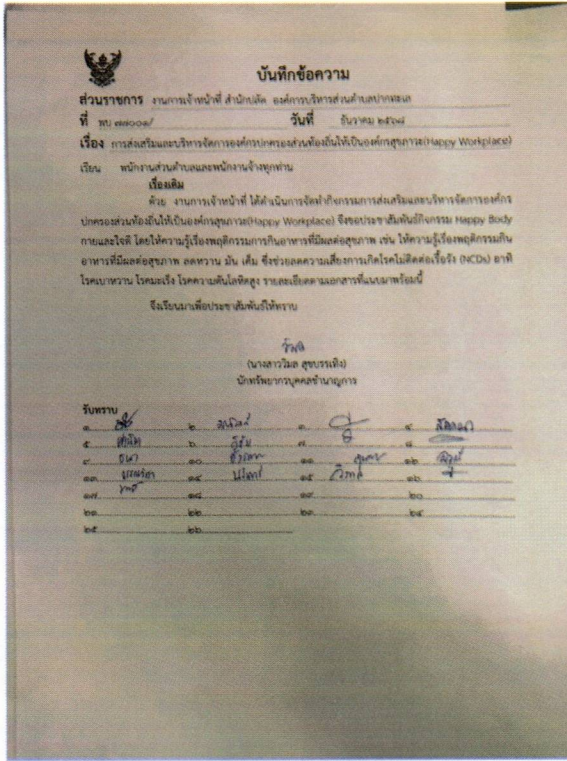 บันทึกข้อความ
ส่วนราชการ งานการเจ้าหน้าที่ สำนักปลัด องค์การบริหารส่วนตำบลปากทะเล
ที่ พบ ๗๗๐๐๑/ วันที่ ธันวาคม ๒๕๖๘
เรื่อง การส่งเสริมและบริหารจัดการองค์กรปกครองส่วนท้องถิ่นให้เป็นองค์กรสุขภาวะ(Happy Workplace)
เรียน พนักงานส่วนตำบลและพนักงานจ้างทุกท่าน
เรื่องเดิม
ด้วย งานการเจ้าหน้าที่ ได้ดำเนินการจัดทำกิจกรรมการส่งเสริมและบริหารจัดการองค์กร
ปกครองส่วนท้องถิ่นให้เป็นองค์กรสุขภาวะ(Happy Workplace) จึงขอประชาสัมพันธ์กิจกรรม Happy Body
กายและใจดี โดยให้ความรู้เรื่องพฤติกรรมการกินอาหารที่มีผลต่อสุขภาพ เช่น ให้ความรู้เรื่องพฤติกรรมกิน
อาหารที่มีผลต่อสุขภาพ ลดหวาน มัน เค็ม ซึ่งช่วยลดความเสี่ยงการเกิดโรคไม่ติดต่อเรื้อรัง (NCDs) อาทิ
โรคเบาหวาน โรคมะเร็ง โรคความดันโลหิตสูง รายละเอียดตามเอกสารที่แนบมาพร้อมนี้
จึงเรียนมาเพื่อประชาสัมพันธ์ให้ทราบ
วิมล
(นางสาววิมล สุขบรรเทิง)
นักทรัพยากรบุคคลชำนาญการ
รับทราบ
๑ ๒ ๓ ๔
๕ ๖ ๗ ๘
๙ ๑๐ ๑๑ ๑๒
๑๓ ๑๔ ๑๕ ๑๖
๑๗ ๑๘ ๑๙ ๒๐
๒๑ ๒๒ ๒๓ ๒๔
๒๕ ๒๖